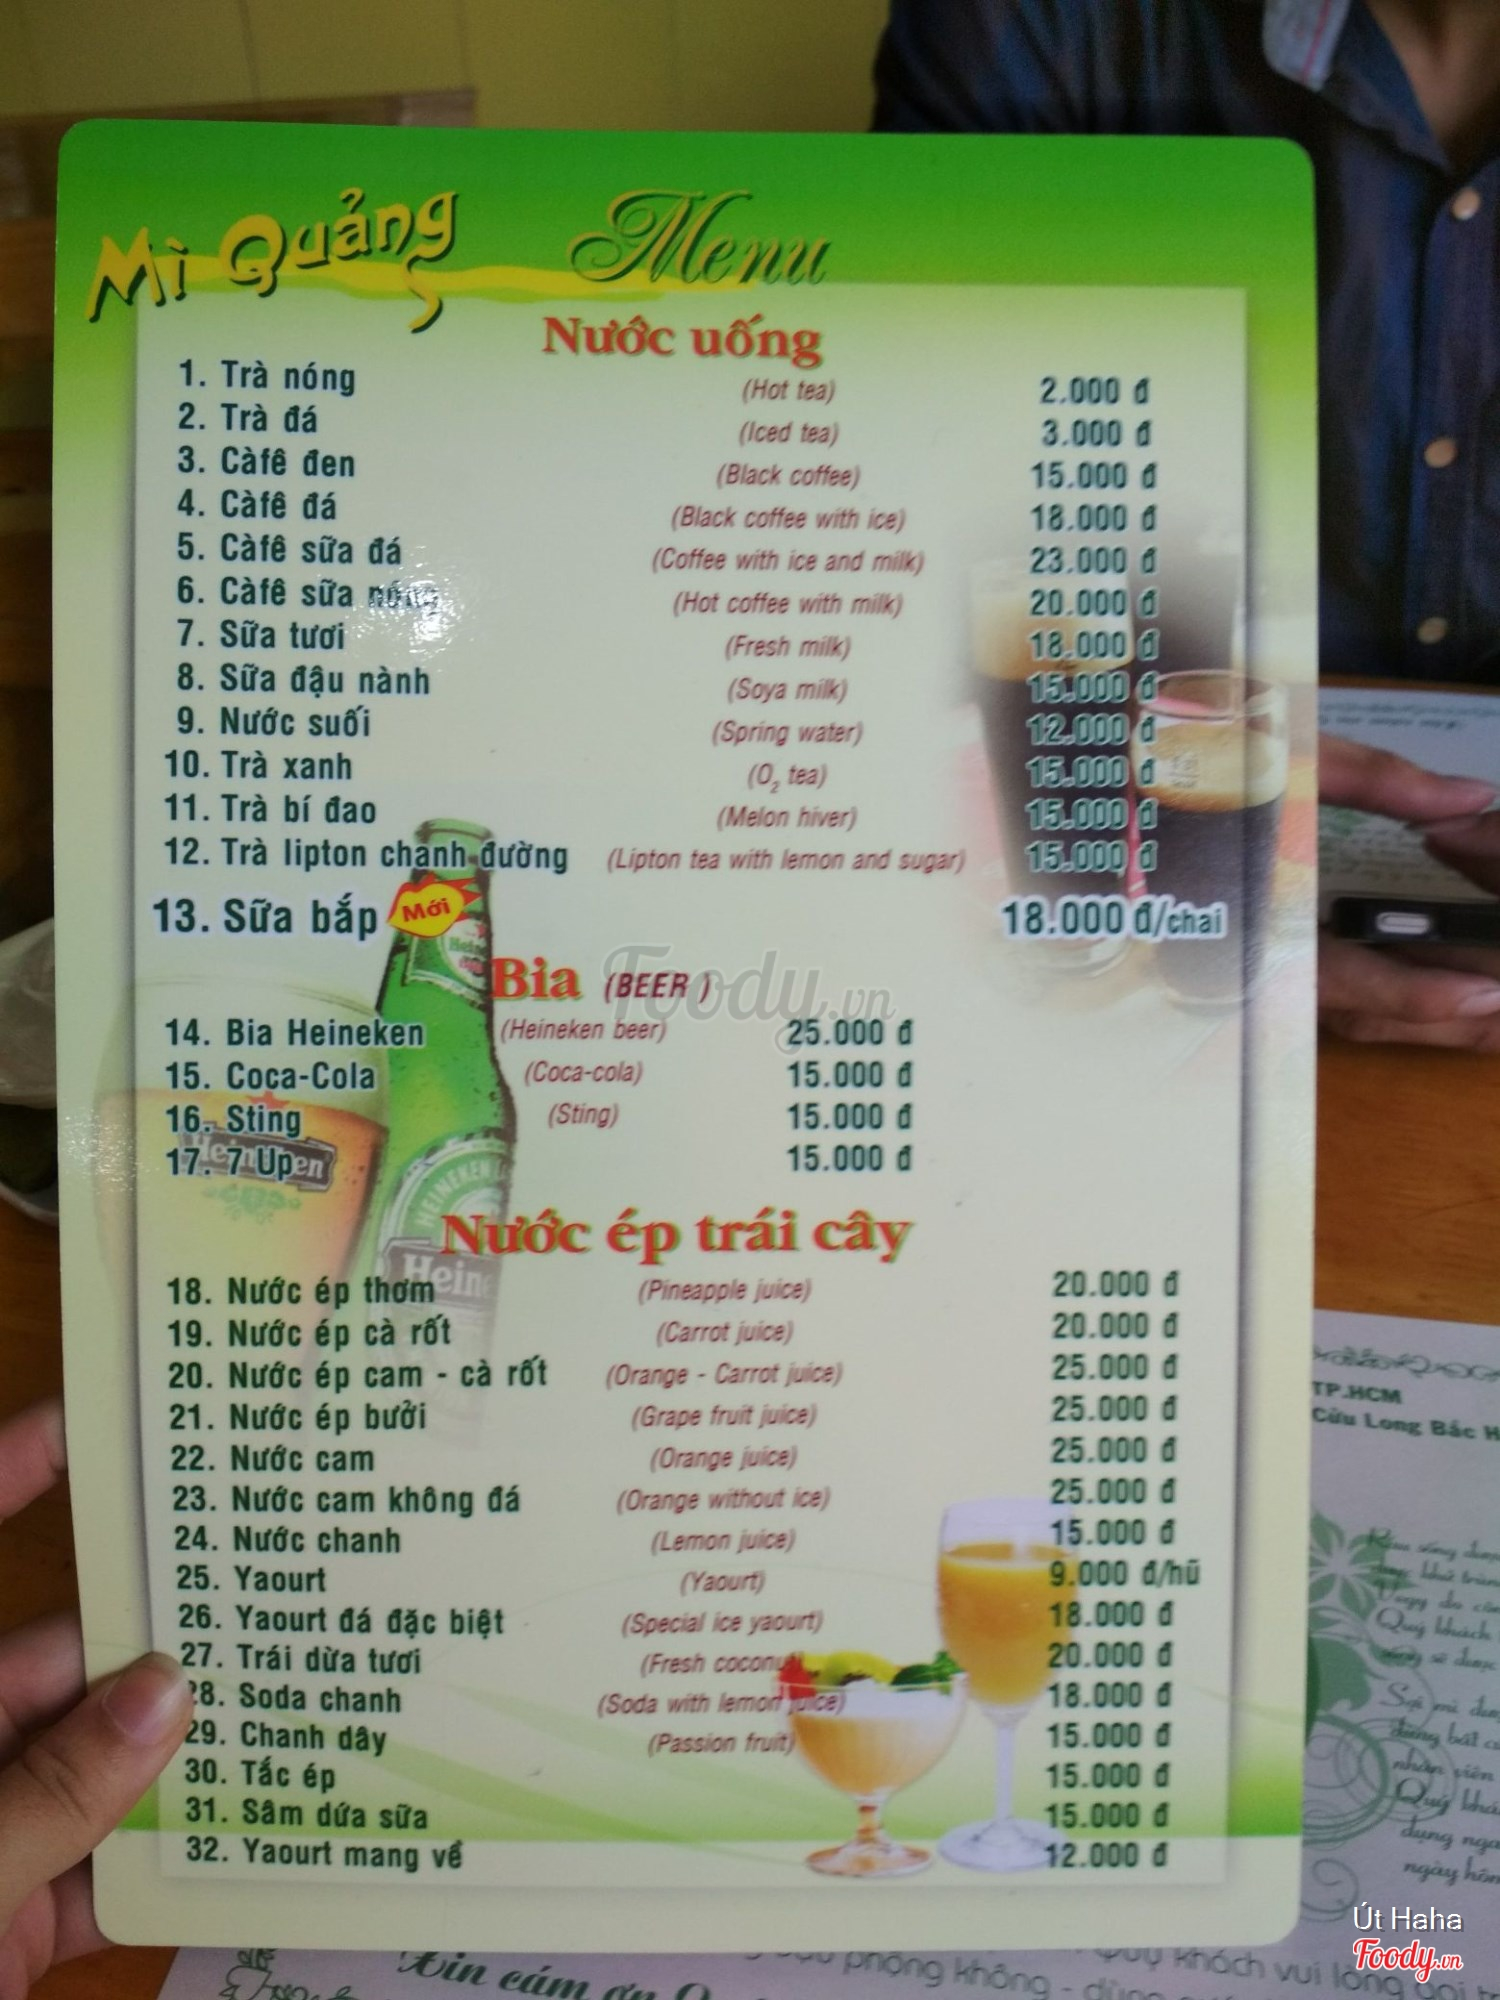 Mì Quảng Menu
Nước uống
1. Trà nóng (Hot tea) 2.000 đ
2. Trà đá (Iced tea) 3.000 đ
3. Càfê đen (Black coffee) 15.000 đ
4. Càfê đá (Black coffee with ice) 18.000 đ
5. Càfê sữa đá (Coffee with ice and milk) 23.000 đ
6. Càfê sữa nóng (Hot coffee with milk) 20.000 đ
7. Sữa tươi (Fresh milk) 18.000 đ
8. Sữa đậu nành (Soya milk) 15.000 đ
9. Nước suối (Spring water) 12.000 đ
10. Trà xanh (O₂ tea) 15.000 đ
11. Trà bí đao (Melon hiver) 15.000 đ
12. Trà lipton chanh đường (Lipton tea with lemon and sugar) 15.000 đ
13. Sữa bắp Mới 18.000 đ/chai
Bia (BEER)
14. Bia Heineken (Heineken beer) 25.000 đ
15. Coca-Cola (Coca-cola) 15.000 đ
16. Sting (Sting) 15.000 đ
17. 7 Up 15.000 đ
Heineken
Nước ép trái cây
18. Nước ép thơm (Pineapple juice) 20.000 đ
19. Nước ép cà rốt (Carrot juice) 20.000 đ
20. Nước ép cam - cà rốt (Orange - Carrot juice) 25.000 đ
21. Nước ép bưởi (Grape fruit juice) 25.000 đ
22. Nước cam (Orange juice) 25.000 đ
23. Nước cam không đá (Orange without ice) 25.000 đ
24. Nước chanh (Lemon juice) 15.000 đ
25. Yaourt (Yaourt) 9.000 đ/hũ
26. Yaourt đá đặc biệt (Special ice yaourt) 18.000 đ
27. Trái dừa tươi (Fresh coconut) 20.000 đ
28. Soda chanh (Soda with lemon juice) 18.000 đ
29. Chanh dây (Passion fruit) 15.000 đ
30. Tắc ép 15.000 đ
31. Sâm dứa sữa 15.000 đ
32. Yaourt mang về 12.000 đ
Foody.vn
TP.HCM
Cửu Long Bắc H
Quý khách
nhân viên
Xin cám ơn Q
phộng không - dùng
Quý khách vui lòng gọi
Út Haha
Foody.vn